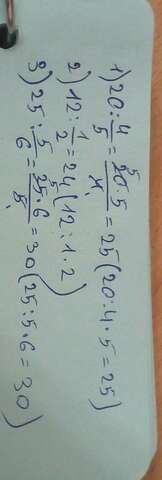 1) 20 : 4/5 = 20·5/4 = 25 (20:4·5=25)
2) 12 : 1/2 = 24 (12:1·2)
3) 25 : 5/6 = 25·6/5 = 30 (25:5·6=30)